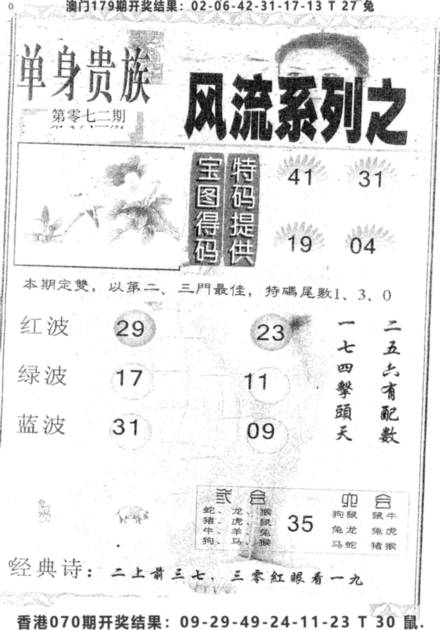 0
澳门179期开奖结果：02-06-42-31-17-13 T 27 兔
单身贵族
第零七二期
风流系列之
宝图得码
特码提供
41 31
19 04
本期定雙，以第二、三門最佳，特碼尾數1、3、0
红波 29 23
绿波 17 11
蓝波 31 09
二五六有配數
一七四擊頭天
蛇、龙、猴
猪、虎、鼠
牛、羊、兔
狗、马、猴
35
六合
狗鼠 鼠牛
兔龙 兔虎
马蛇 猪猴
经典诗：二上前三七，三零紅眼看一九
香港070期开奖结果：09-29-49-24-11-23 T 30 鼠.